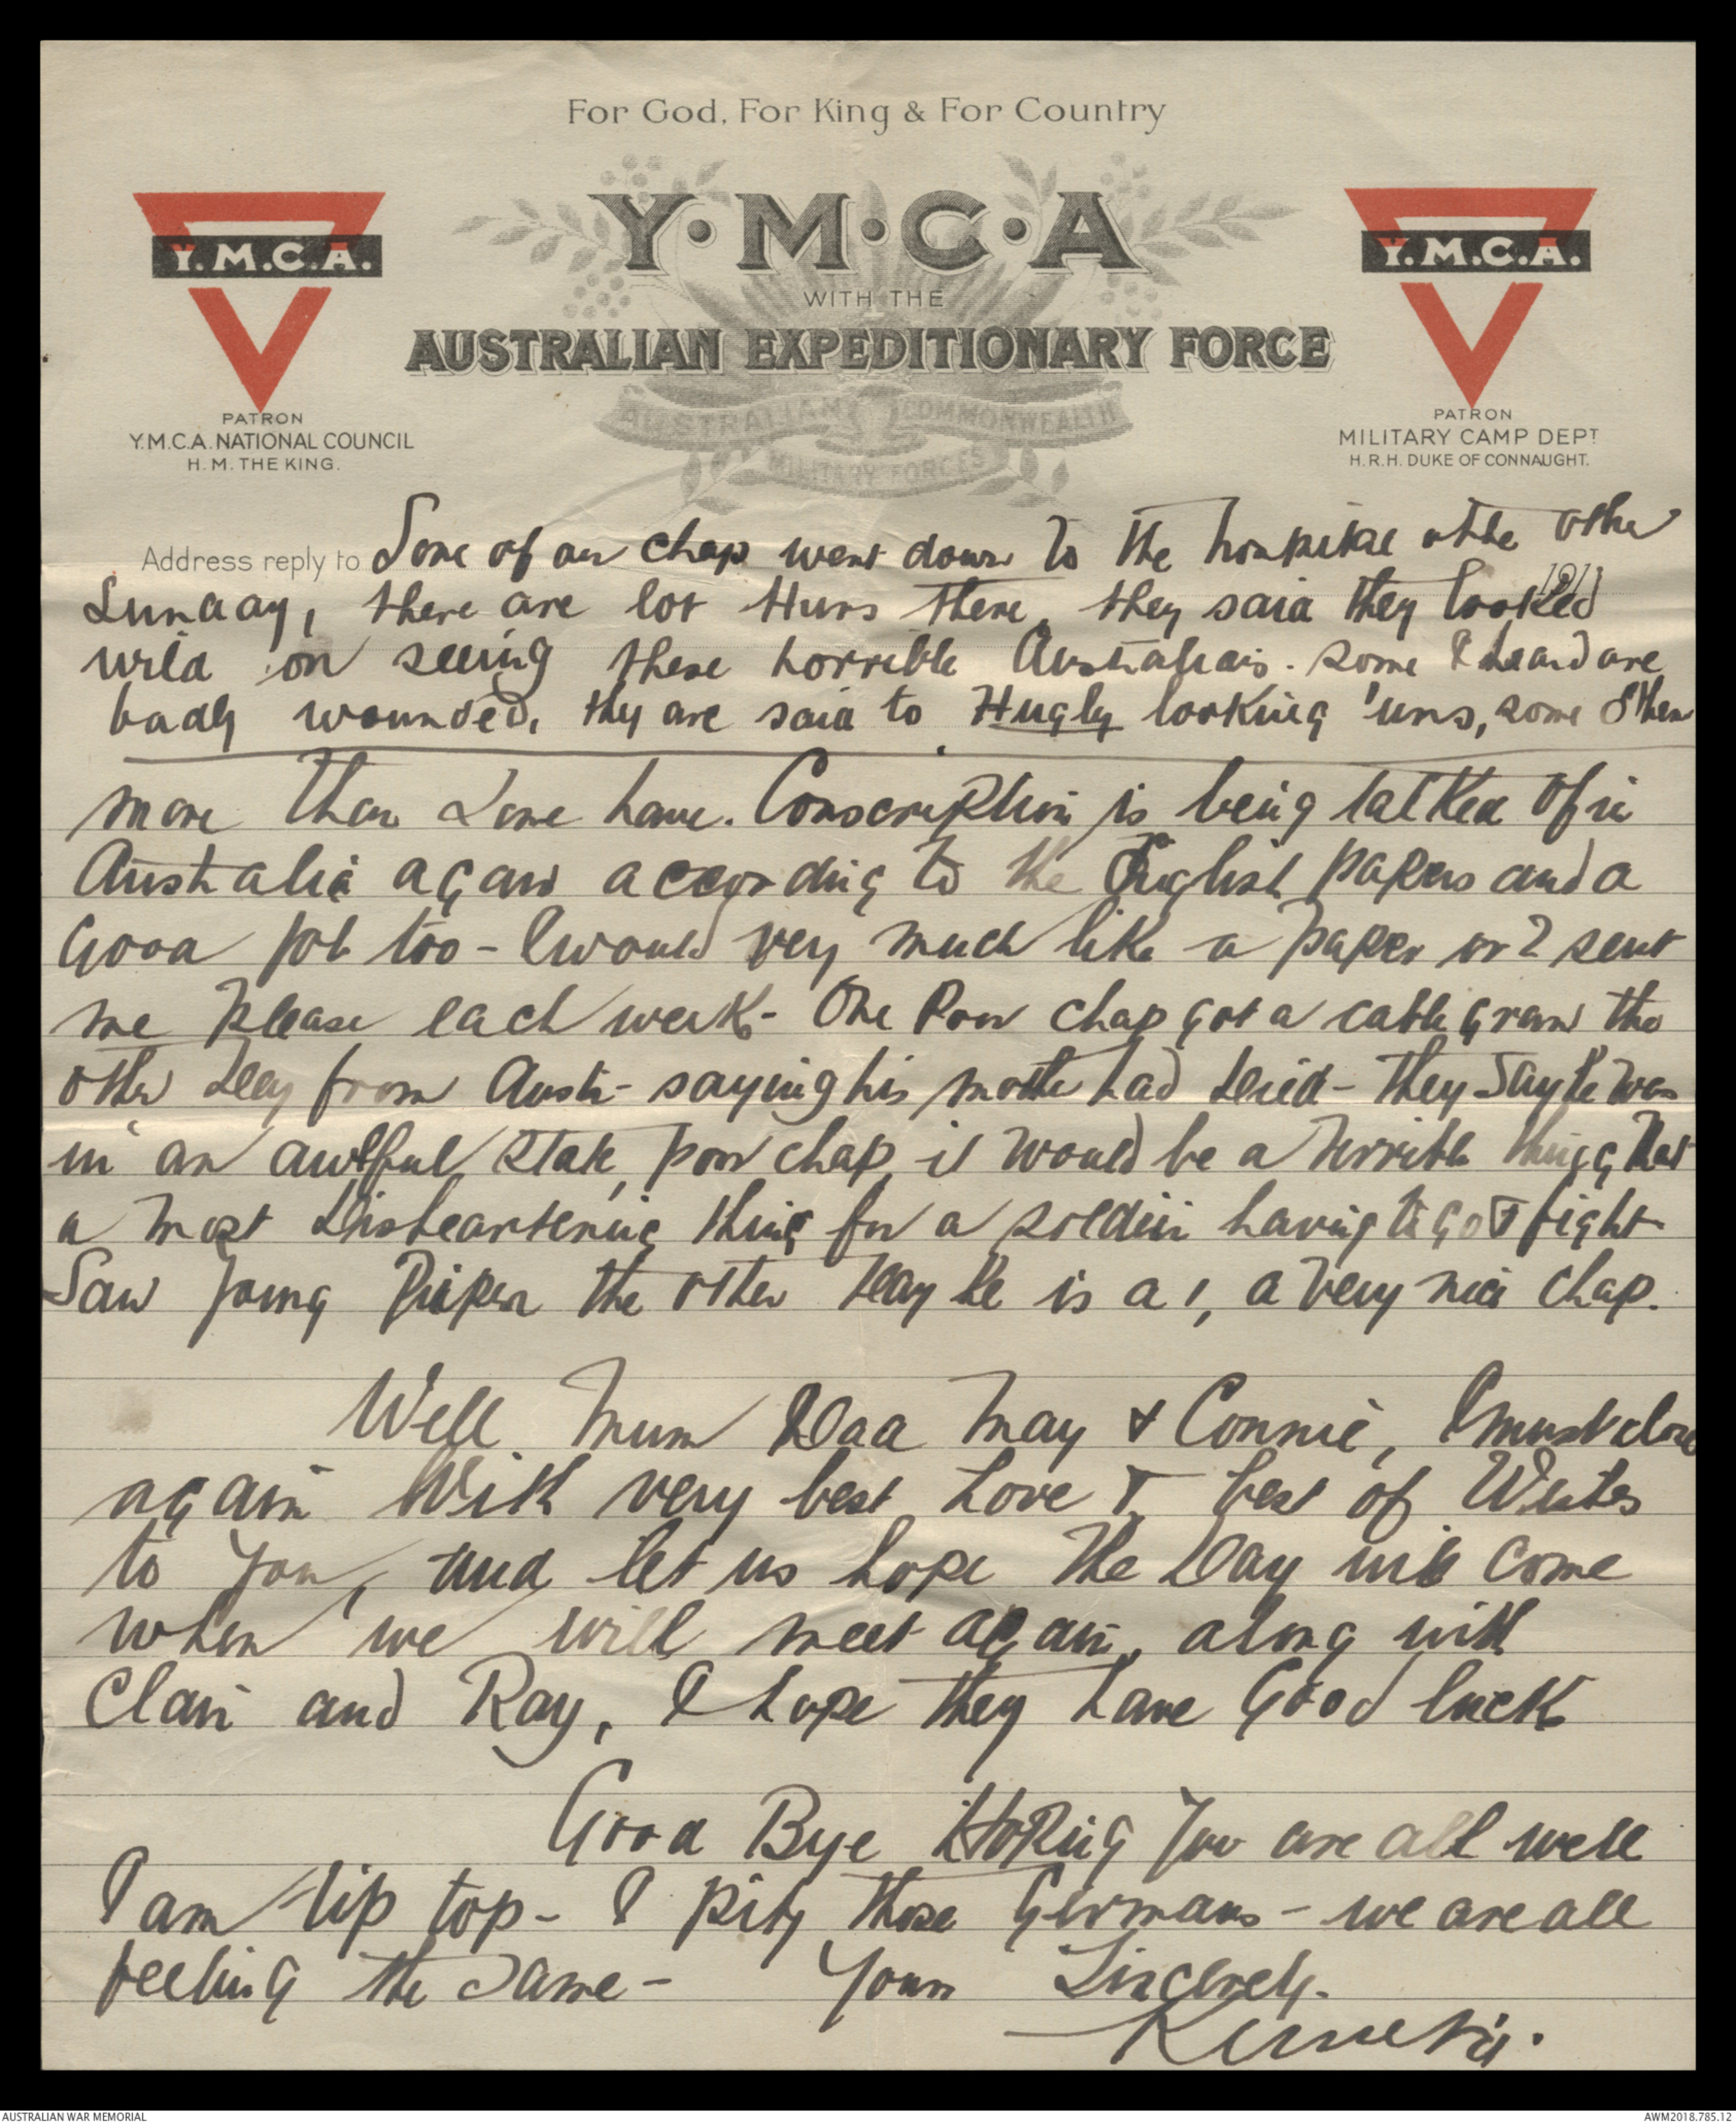 For God, For King & For Country
Y·M·C·A
WITH THE
AUSTRALIAN EXPEDITIONARY FORCE
AUSTRALIAN COMMONWEALTH
MILITARY FORCES
Y.M.C.A.
PATRON
Y.M.C.A. NATIONAL COUNCIL
H. M. THE KING.
Y.M.C.A.
PATRON
MILITARY CAMP DEPT
H.R.H. DUKE OF CONNAUGHT.
Address reply to Some of our chap went down to the hospital the other
191
Sunday, there are lot Huns there, they said they looked
wild on seeing these horrible Australians. Some I heard are
badly wounded, they are said to Hugly looking 'uns, some of them
more than some have. Conscription is being talked of in
Australia again according to the English papers and a
Good job too - I would very much like a paper or 2 sent
me please each week - One Poor chap got a cable gram the
other day from Austr- saying his mother had died - they say he was
in an awfful state, poor chap, it would be a terrible thing &
a most disheartening thing for a soldier having to go & fight
Saw young Pieper the other day he is a 1, a very nice chap.
Well Mum Dad May & Connie, I must close
again With very best Love & best of Wishes
to you, and let us hope the Day will come
when we will meet again, along with
Clair and Ray, I hope they have Good luck
Good Bye Hoping you are all well
I am tip top - I pity those Germans - we are all
feeling the same - Yours Sincerely.
AUSTRALIAN WAR MEMORIAL
AWM2018.785.12